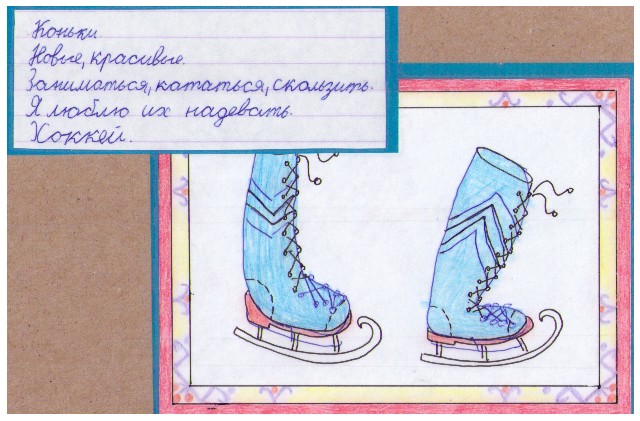 Коньки.
Новые, красивые.
Заниматься, кататься, скользить.
Я люблю их надевать.
Хоккей.